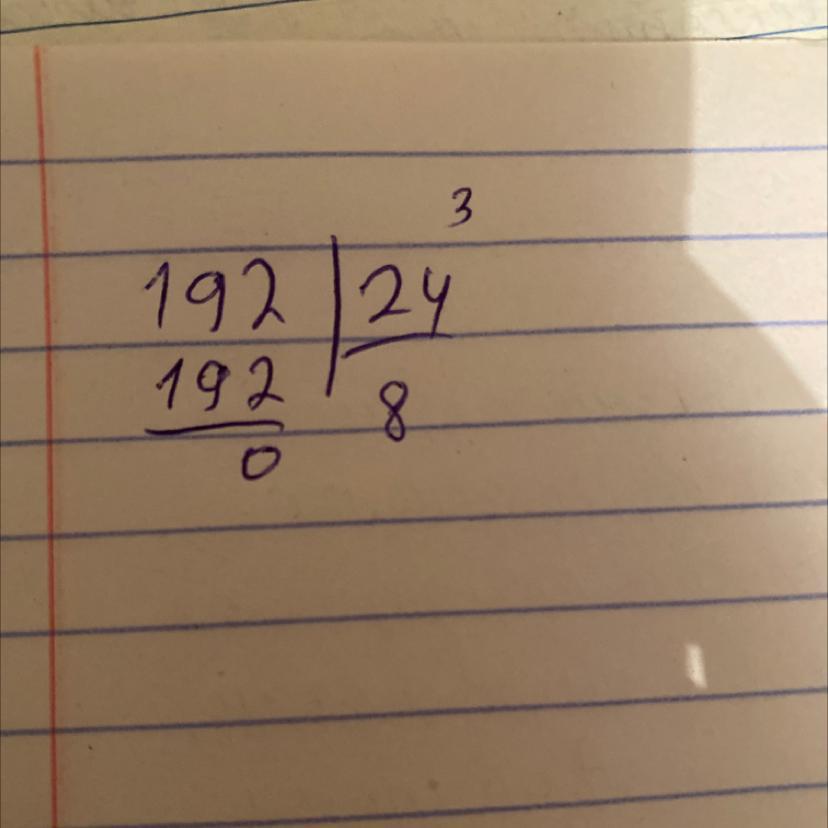 3
192 24
192 8
0